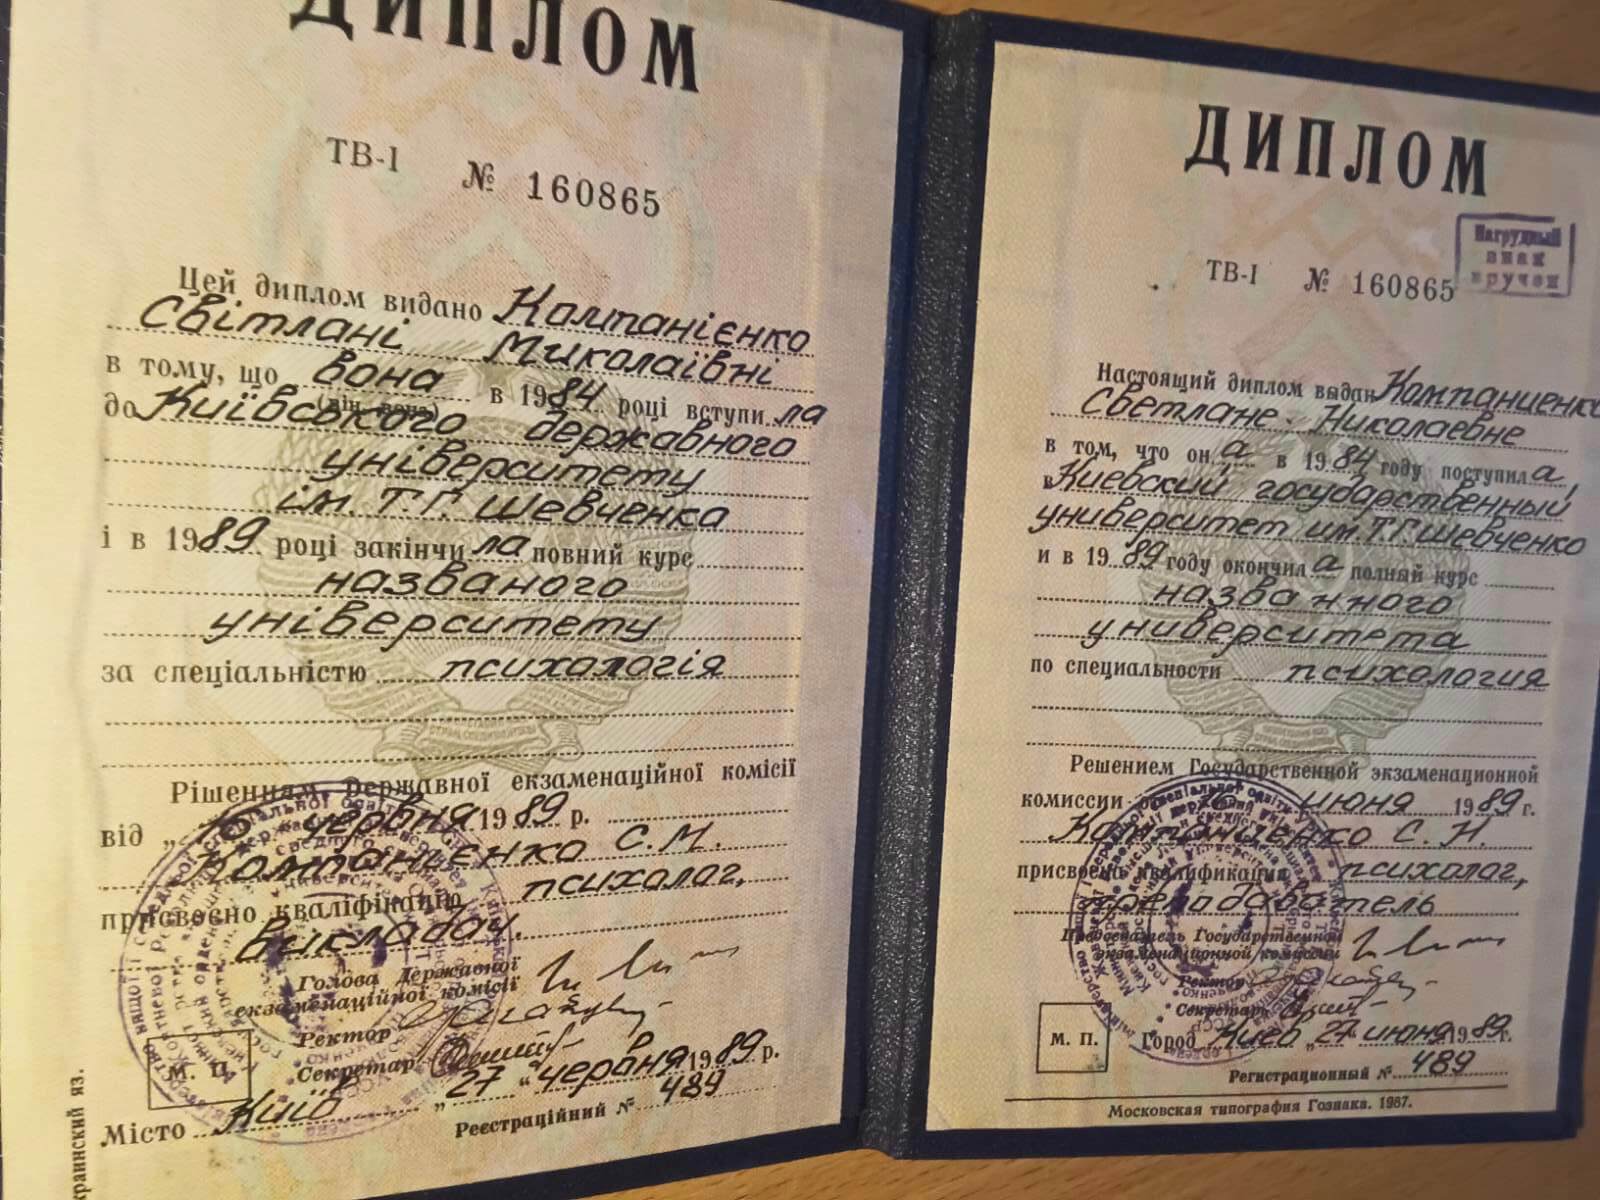 ДИПЛОМ
ТВ-I № 160865
Цей диплом видано Компанієнко
Світлані Миколаївні
в тому, що вона в 1984 році вступила
(він, вона)
до Київського державного
університету
ім. Т.Г. Шевченка
і в 1989 році закінчила повний курс
названого
університету
за спеціальністю психологія
Рішенням Державної екзаменаційної комісії
від „ червня 1989 р.
Компанієнко С.М.
присвоєно кваліфікацію психолог,
викладач.
Голова Державної
екзаменаційної комісії
Ректор
Секретар
М. П.
Місто Київ „27“ червня 1989 р.
Реєстраційний № 489
краинский яз.
ДИПЛОМ
Нагрудный
знак
вручен
ТВ-I № 160865
Настоящий диплом выдан Компаниенко
Светлане Николаевне
в том, что она в 1984 году поступила,
в Киевский государственный
университет им. Т.Г. Шевченко
и в 1989 году окончила полный курс
названного
университета
по специальности психология
Решением Государственной экзаменационной
комиссии июня 1989 г.
Компаниенко С. Н.
присвоена квалификация психолог,
преподаватель
Председатель Государственной
экзаменационной комиссии
Ректор
Секретарь
М. П.
Город Киев „27“ июня 1989 г.
Регистрационный № 489
Московская типография Гознака. 1987.